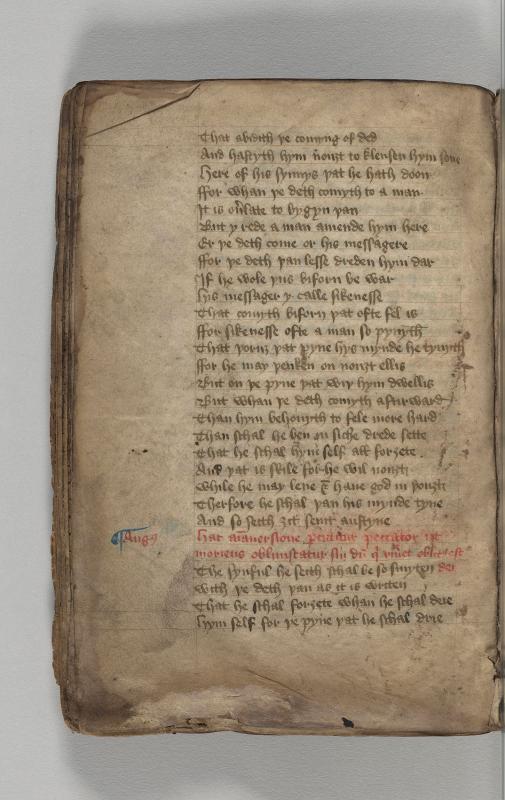 That abidith þe comyng of ded
And hastyth hym nouȝt to klensen hym sone
Here of his synnys þat he hath doon
ffor whan þe deth comyth to a man
It is to late to bygyn þan
But y rede a man amende hym here
Er þe deth come or his messagere
ffor þe deth þan lesse dreden hym dar
If he wole þus biforn be war
his messager y calle sikenesse
That comyth biforn þat ofte fel is
ffor sikenesse ofte a man so pynyth
That þoruȝ þat pyne hys mynde he tynyth
ffor he may þenken on nouȝt ellis
But on þe pyne þat wiþ hym dwellis
But whan þe deth comyth aftirward
Than hym behouyth to fele more hard
Than schal he ben in siche drede sette
That he schal hym self all forȝete
And þat is skile for he wil nouȝt
while he may leue & haue god in þouȝt
Therfore he schal þan his mynde tyne
And so seith ȝit seint austyne
Augꝰ
Hac
peccator
moriens obliuiscatur
The synful he seith schal be so smyten
with þe deth þan as it is writen
That he schal forȝete whan he schal deie
hym self for þe pyne þat he schal drie